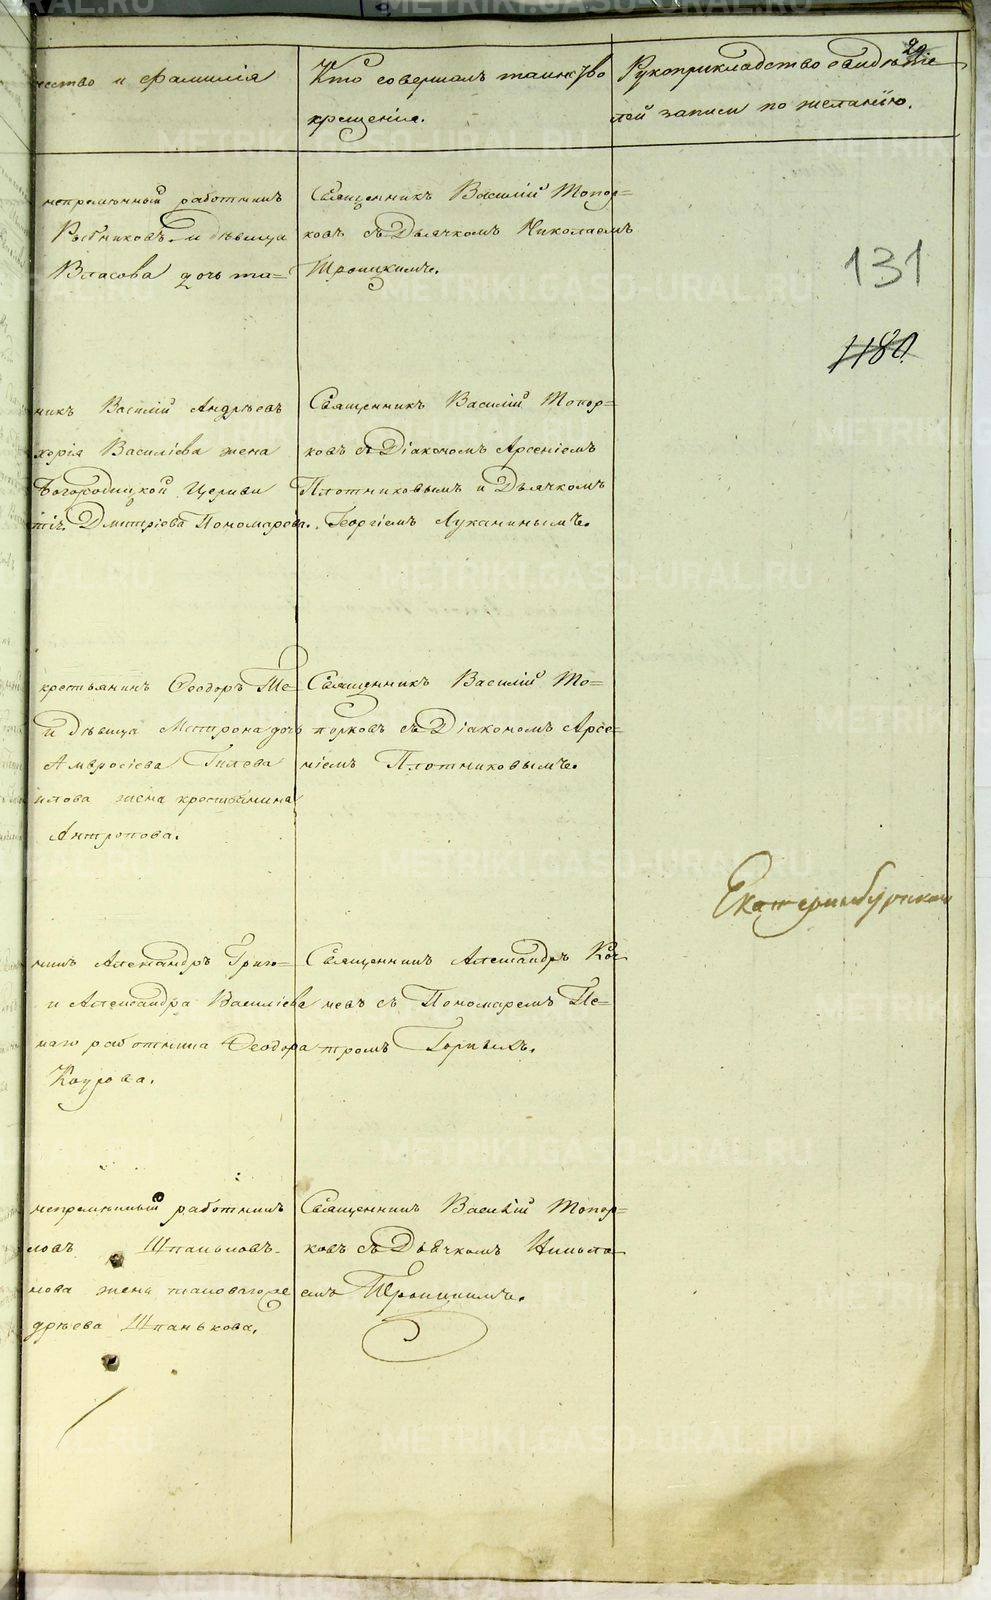 29.
чество и фамилія
Кто совершалъ таинство
крещенія.
Рукоприкладство свидѣте
лей записи по желанію.
непремѣнный работникъ
Рыбниковъ и дѣвица
Власова дочь та=
Священникъ Василій Топор=
ковъ съ Дьячкомъ Николаемъ
Троицкимъ.
131
1180.
никъ Василій Андрѣевъ
Василіева жена
Богородицкой Церкви
Дмитріева Пономарева.
Священникъ Василій Топор=
ковъ съ Діакономъ Арсеніемъ
Плотниковымъ и Дьячкомъ
Георгіемъ Луканинымъ.
крестьянинъ Ѳеодоръ Пе=
и дѣвица Матрона дочь
Амвросіева Гилева
илова жена крестьянина
Антропова.
Священникъ Василій То=
порковъ съ Діакономъ Арсе=
ніемъ Плотниковымъ.
Екатеринбургской
никъ Александръ Григо=
и Александра Василіева
наго работника Ѳеодора
Каурова.
Священникъ Александръ Коч
невъ съ Пономаремъ Пе=
тромъ Горныхъ.
непремѣнный работникъ
ловъ Шпаньковъ.
нова жена таковаго же
дрѣева Шпанькова.
Священникъ Василій Топор=
ковъ съ Дьячкомъ Никола
емъ Троицкимъ.
METRIKI.GASO-URAL.RU